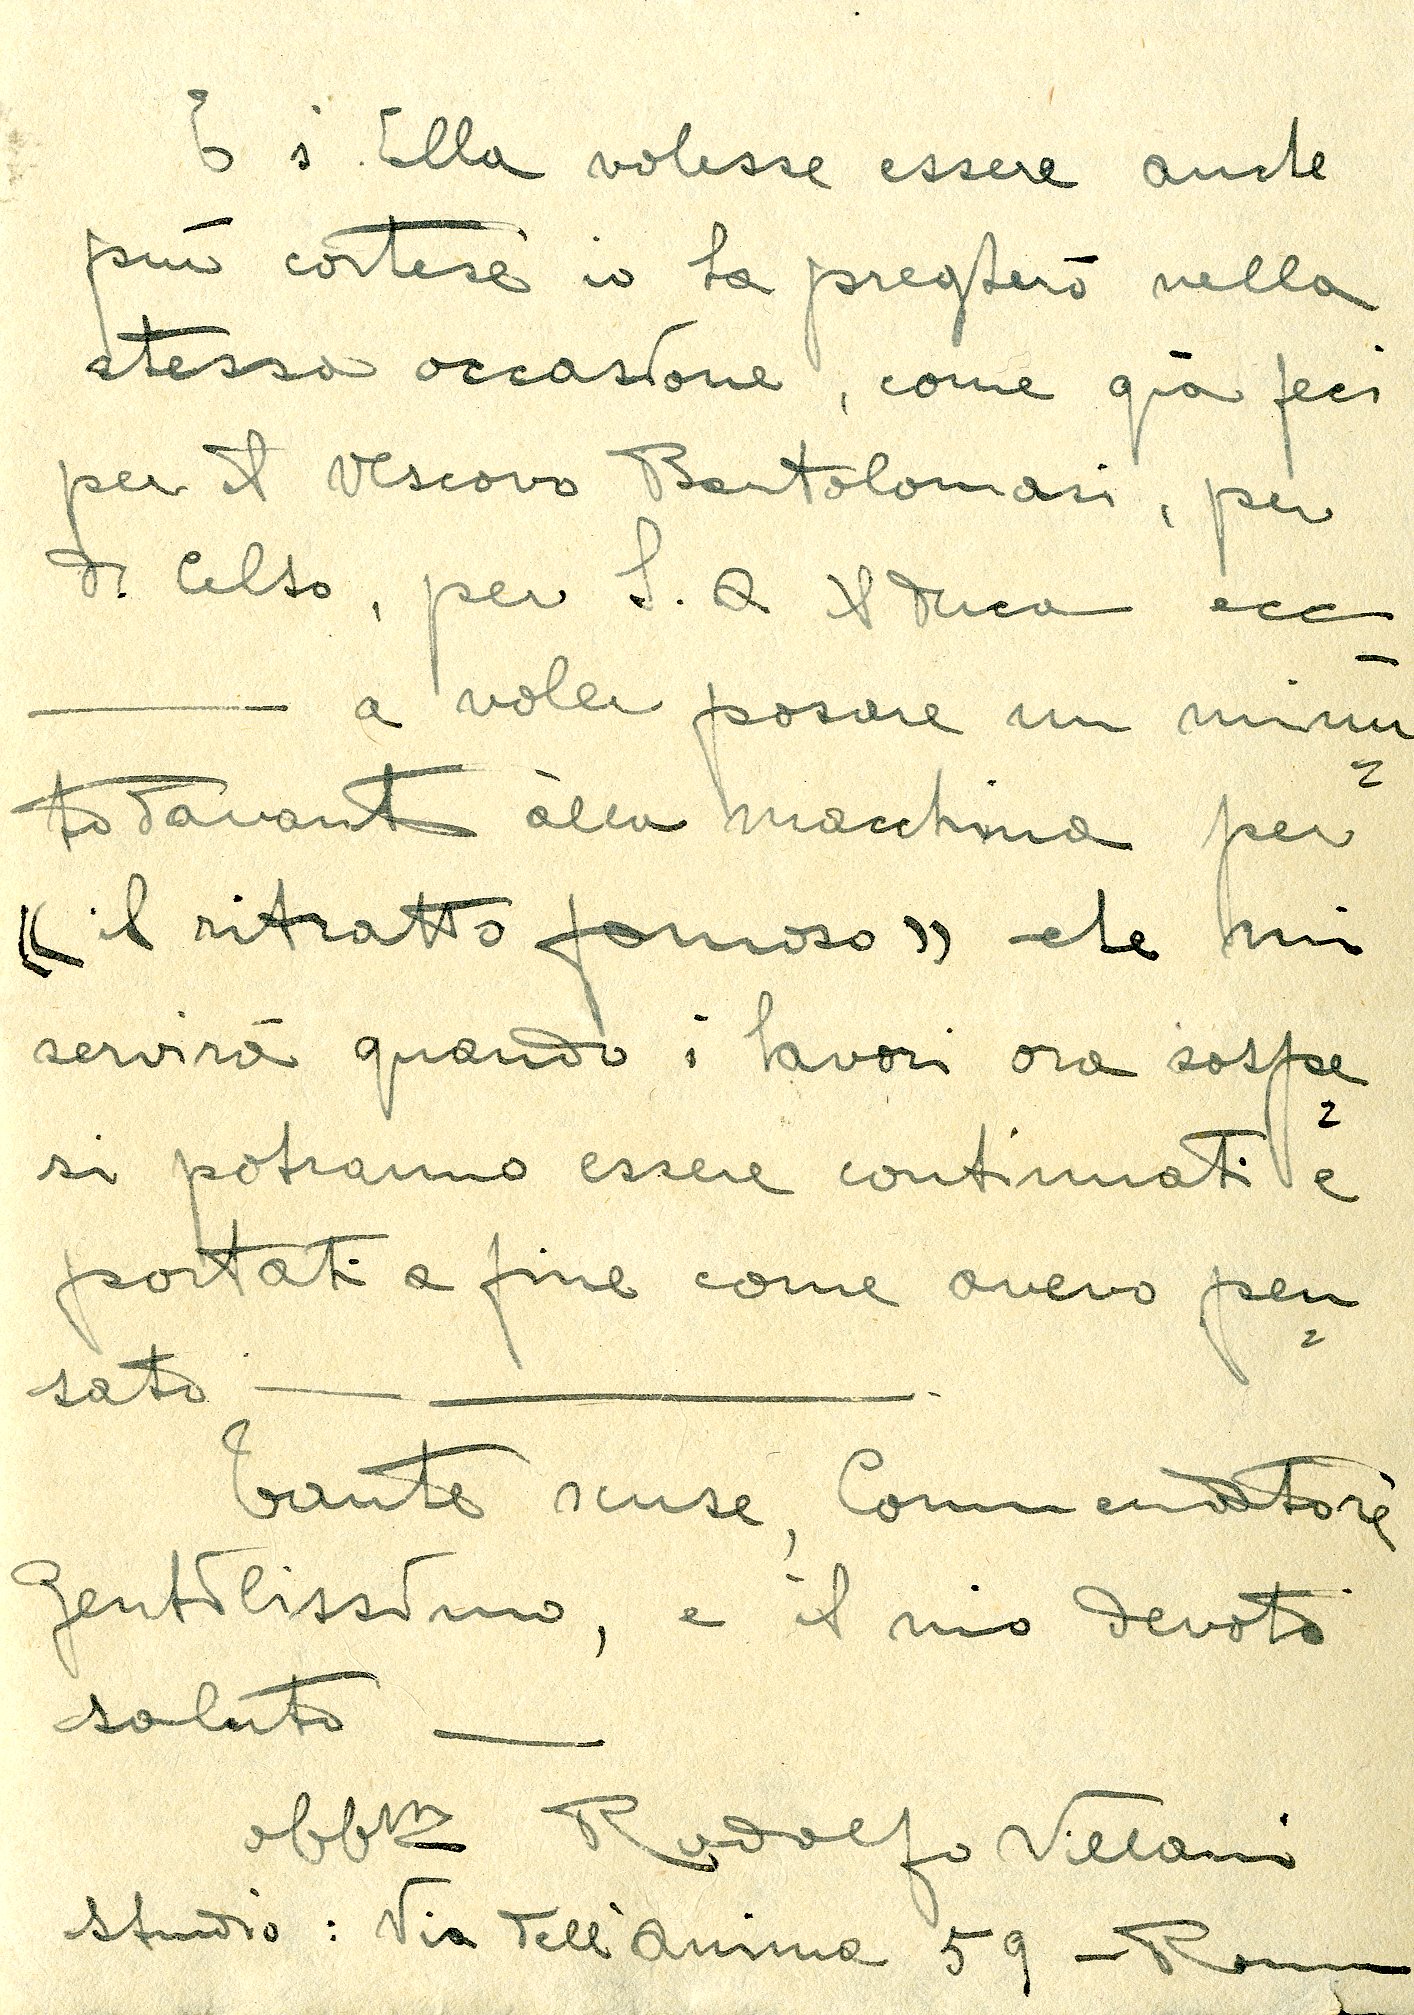 E s' Ella volesse essere anche
più cortese io La pregherò nella
stessa occasione, come già feci
per il Vescovo Bartolomasi, per
di Celso, per S. A il Duca ecc
— a voler posare un minu
to davanti alla macchina per
« il ritratto famoso » che mi
servirà quando i lavori ora sospe
si potranno essere continuati e
portati a fine come avevo pen
sato —
Tante scuse, Commendatore
gentilissimo, e il mio devoto
saluto —
obbmo Rodolfo Villani
studio: Via dell'Anima 59 – Roma